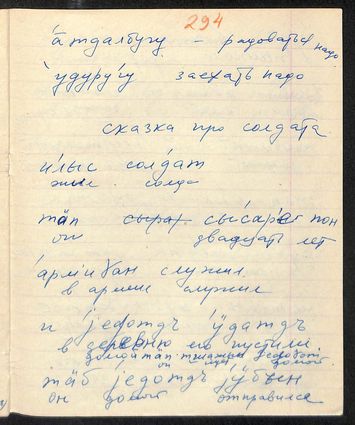 294
а́тдалбугу – радоваться надо
у́дуру́гу заехать надо
сказка про солдата
и́лыс солда́т
жил солда
та̄п сы́са́р е́г пон
он двадцать лет
а́рмиɣан служил
в армии служил
и је́дотдъ ӱ́датдъ
в деревню его пустили
домой
он домой
та̄б је́дотдъ ӱ́бын
он домой отправился